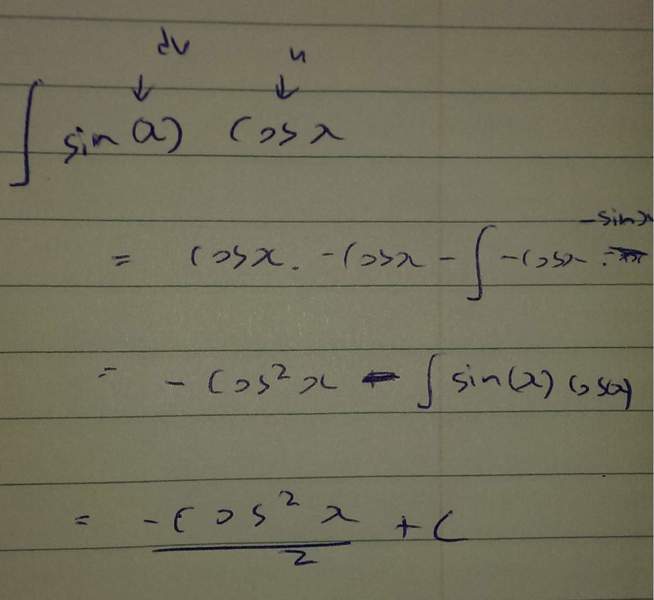 dv u
↓ ↓
∫ sin(x) cosx
= cosx . -cosx - ∫ -cosx . -sinx
= - cos²x - ∫ sin(x) cos(x)
= -cos²x/2 + C